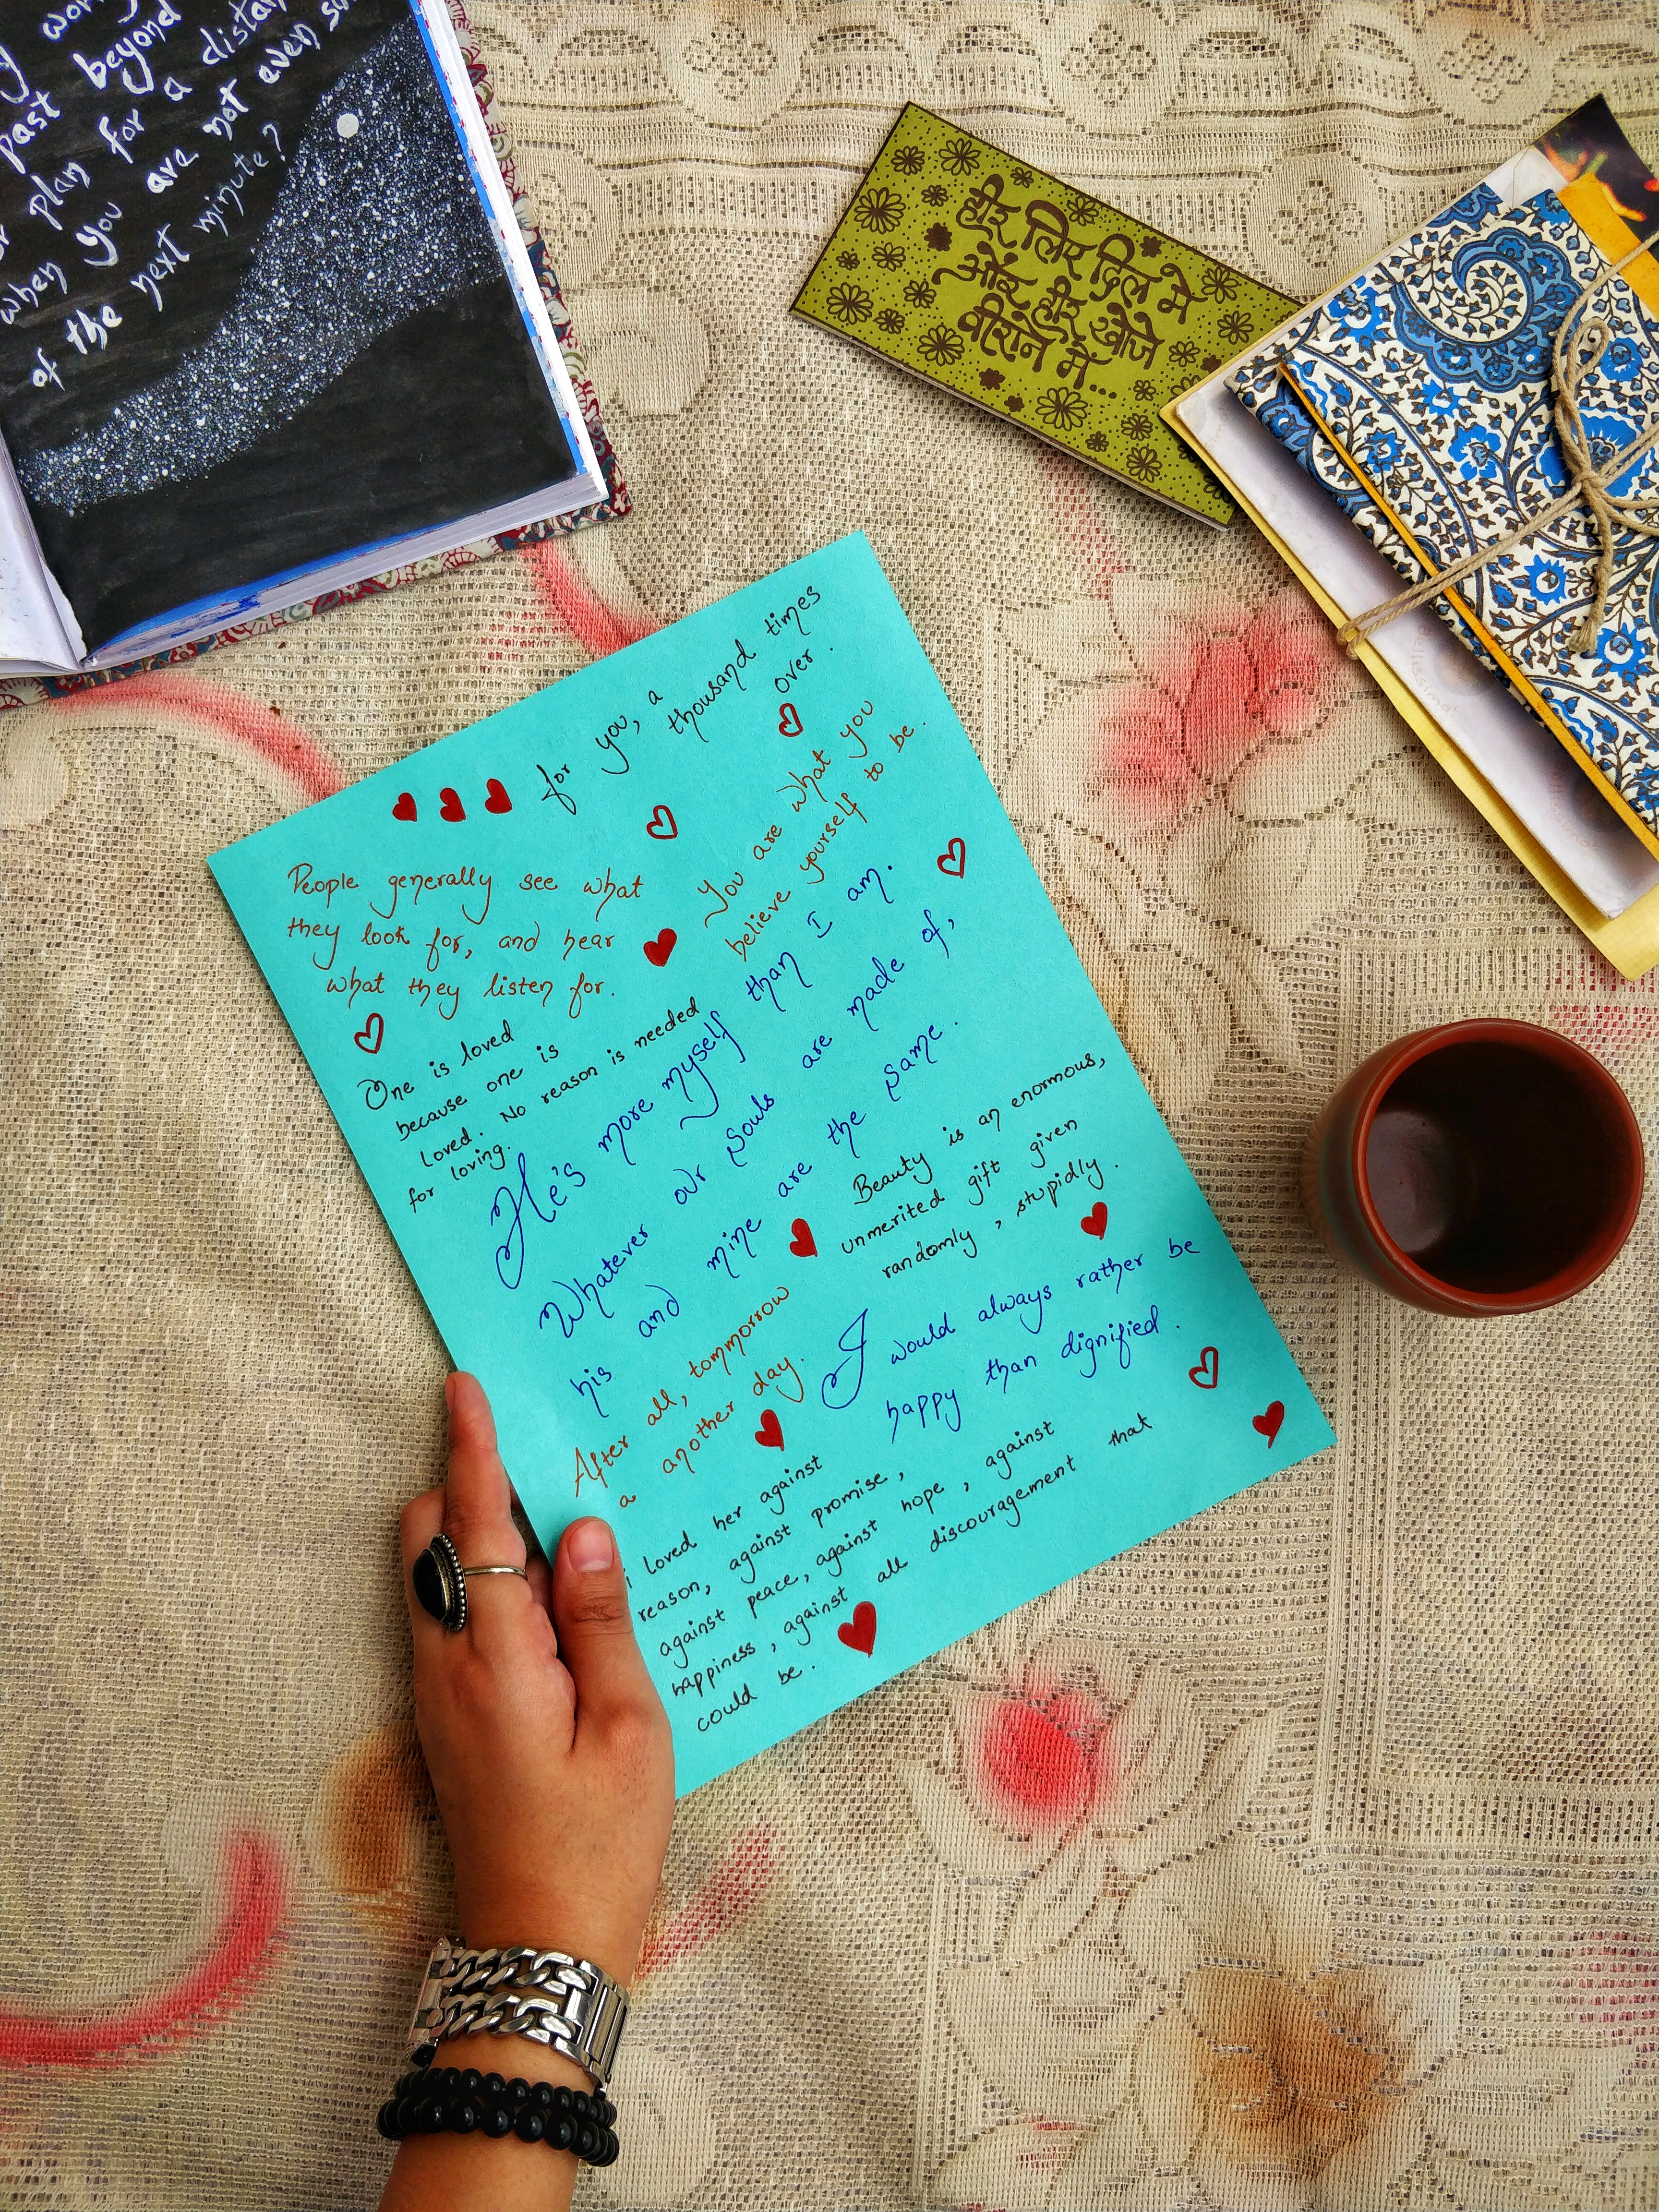 past beyond
plan for a
when you are not even
of the next minute?
हीर लिए दिल में
और हीर खोजे
वीराने में...
for you, a
thousand times
over.
People generally see what
they look for, and hear
what they listen for.
You are what you
believe yourself to be.
One is loved
because one is
loved. No reason is needed
for loving.
He's more myself than I am.
Whatever our souls are made of,
his and mine are the same.
Beauty is an enormous,
unmerited gift given
randomly, stupidly.
After all, tommorrow
a another day.
I would always rather be
happy than dignified.
i loved her against
reason, against promise,
against peace, against hope, against
happiness, against all discouragement that
could be.